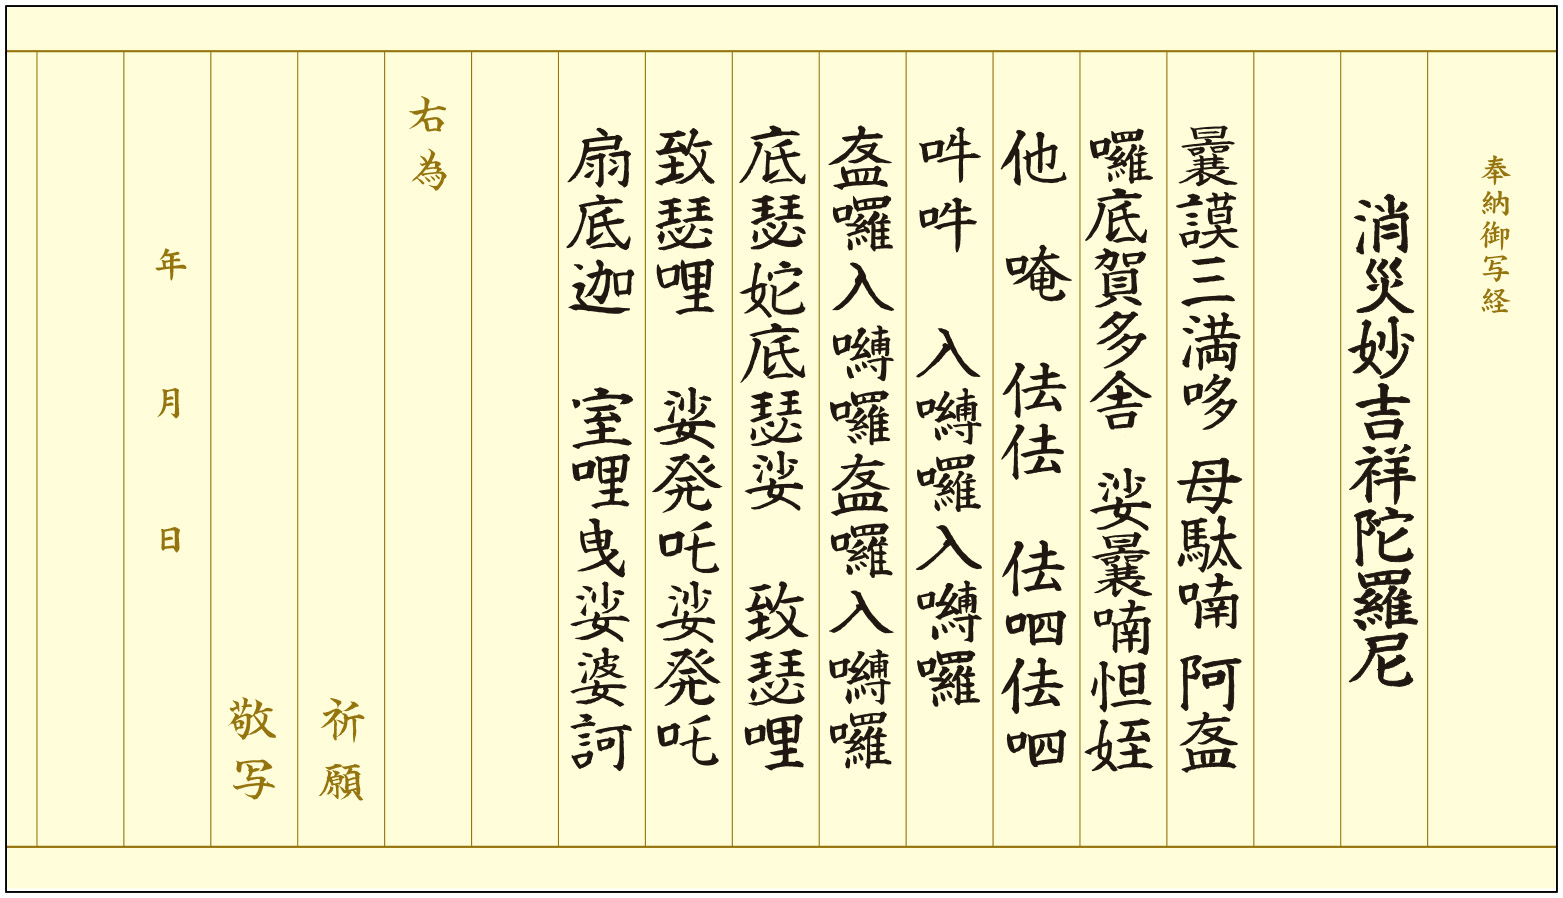 奉納御写経
消災妙吉祥陀羅尼
曩謨三満哆 母駄喃 阿盋
囉底賀多舎 娑曩喃怛姪
他 唵 佉佉 佉呬佉呬
吽吽 入嚩囉入嚩囉
盋囉入嚩囉盋囉入嚩囉
底瑟姹底瑟娑 致瑟哩
致瑟哩 娑発吒娑発吒
扇底迦 室哩曳娑婆訶
右為
祈願
敬写
年 月 日